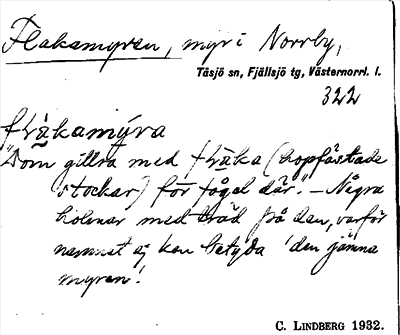 Flakamyran, myr i Norrby,
Tåsjö sn, Fjällsjö tg, Västernorrl. l.
322
flákamýra
"Dom gillra med flaka (hopfästade
stockar) för fågel där." – Några
holmar med träd på den, varför
namnet ej kan betyda 'den jämna
myren'.
C. LINDBERG 1932.